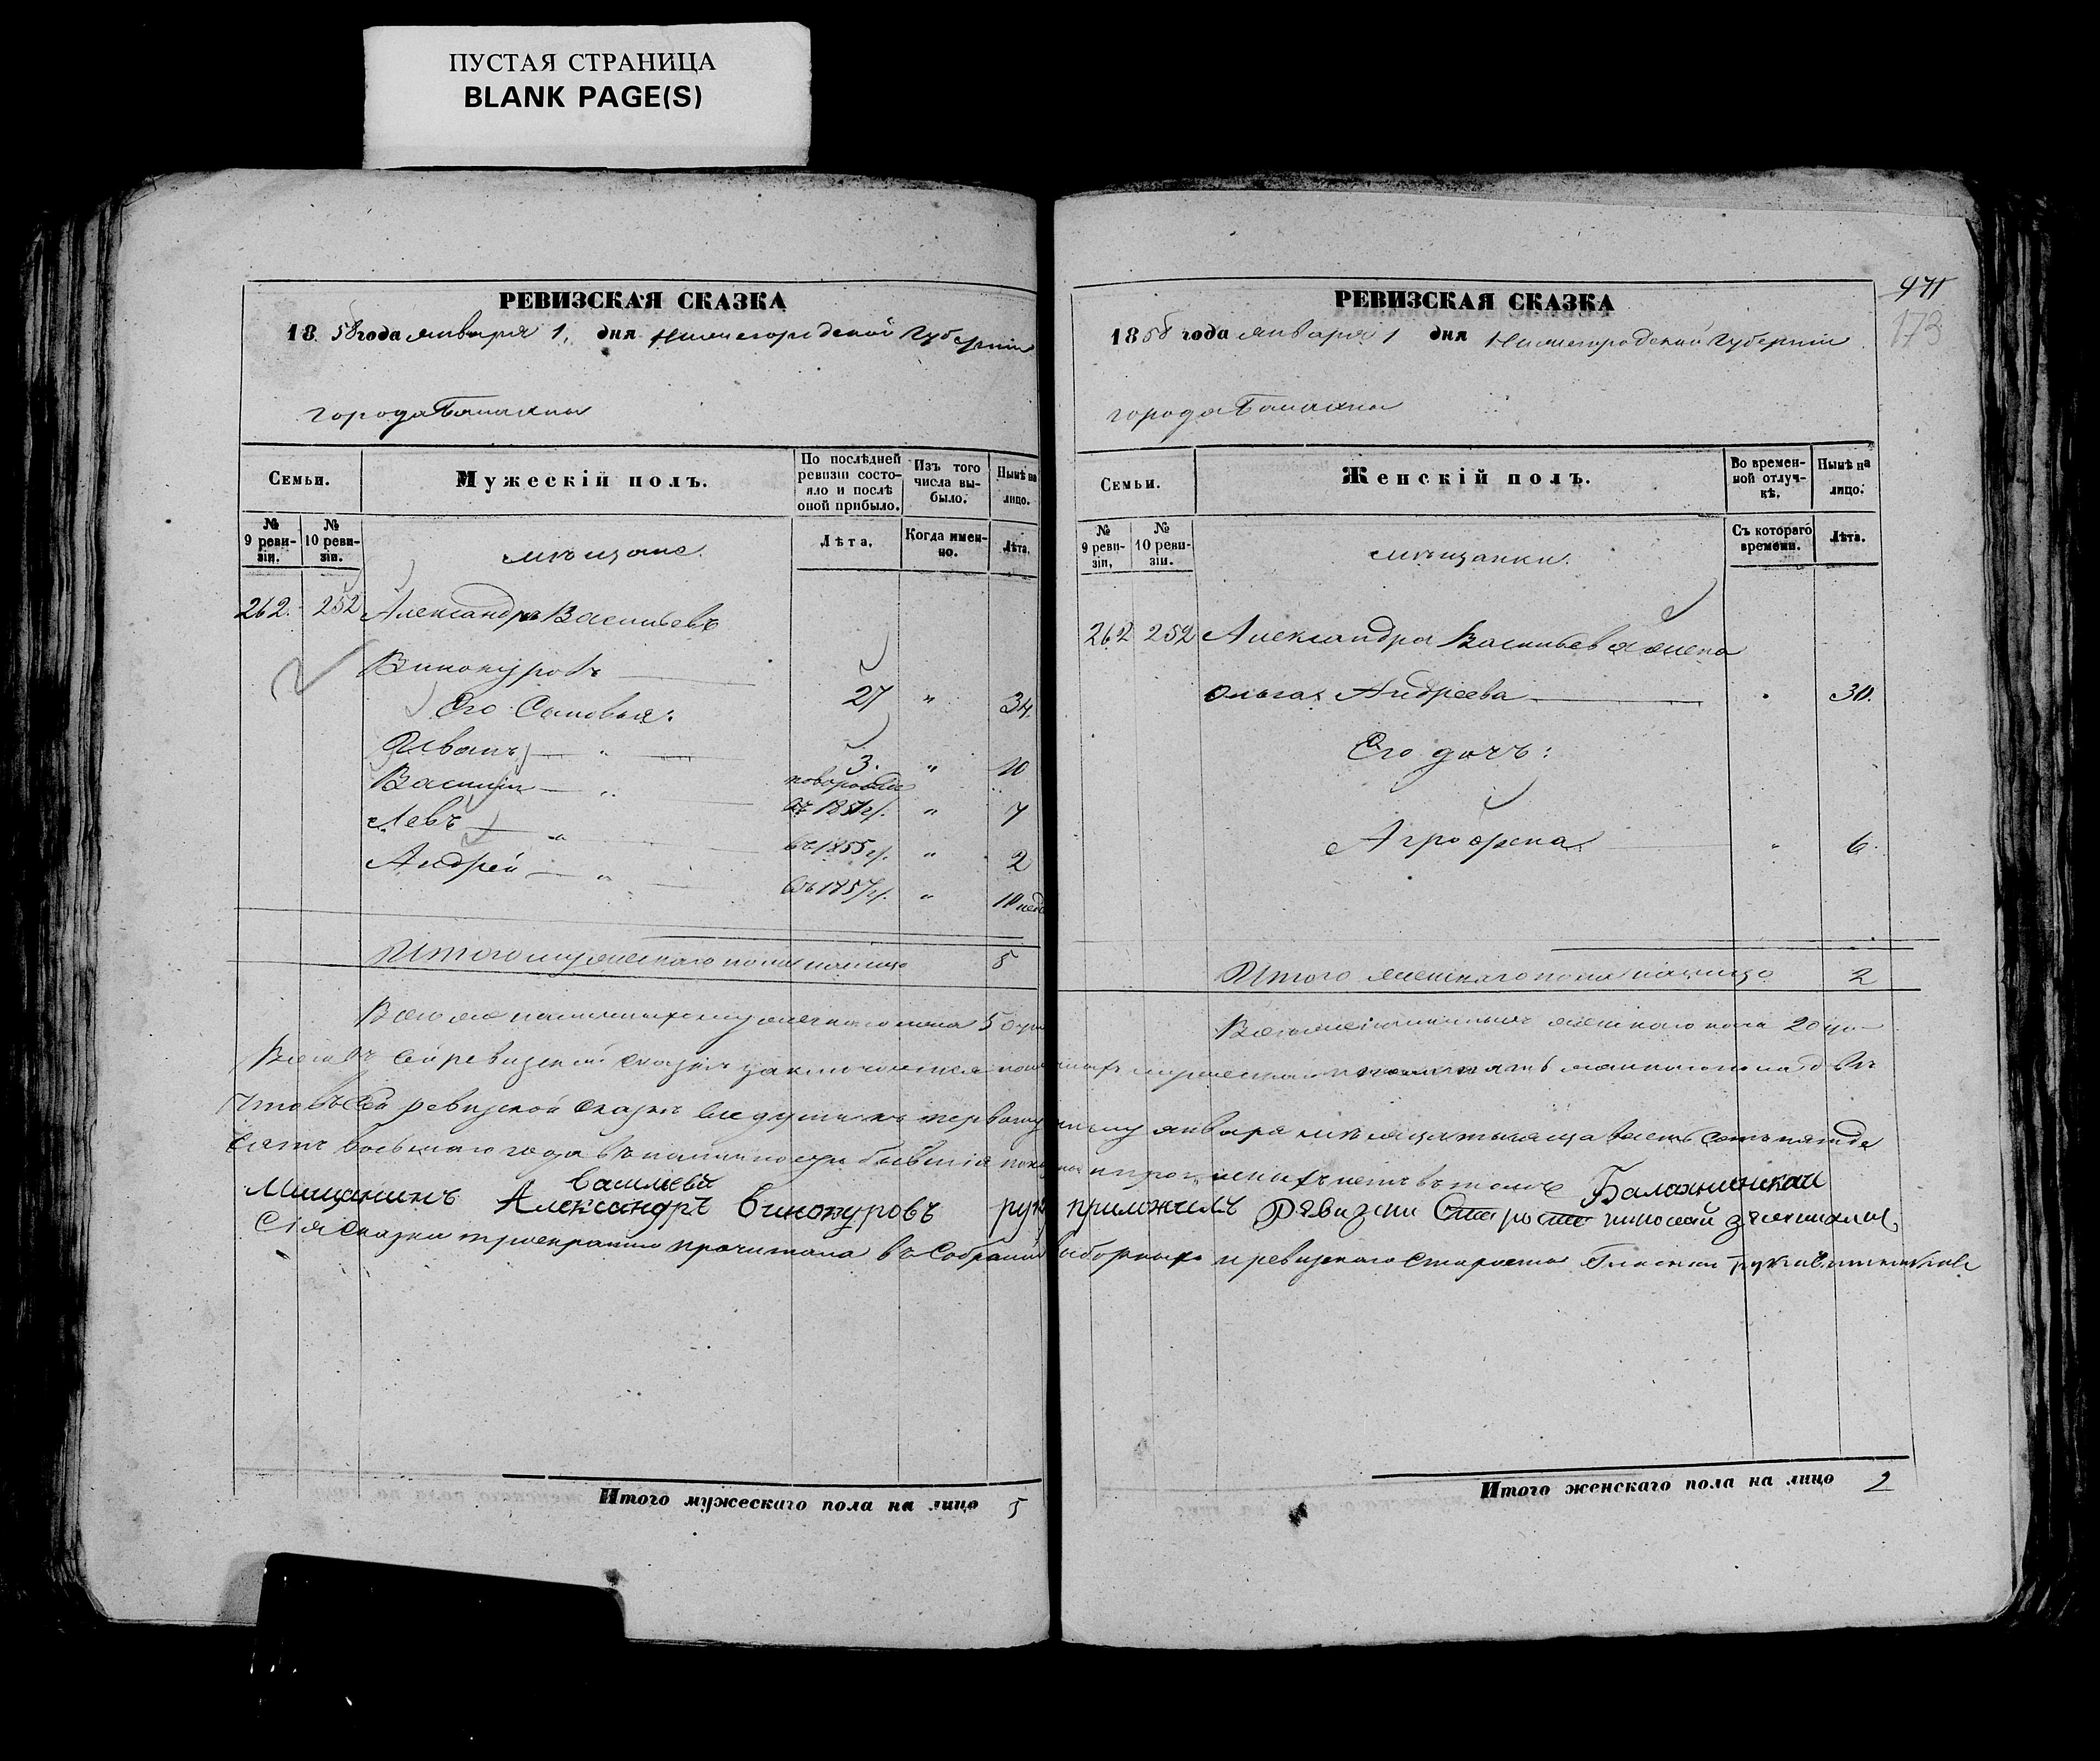 ПУСТАЯ СТРАНИЦА
BLANK PAGE(S)
РЕВИЗСКАЯ СКАЗКА
1858 года января 1, дня Нижегородской Губернии
города Балахны
Семьи.
Мужескій полъ.
По послѣдней ревизіи состояло и послѣ оной прибыло.
Изъ того числа выбыло.
Нынѣ на лицо.
№ 9 ревизіи.
№ 10 ревизіи.
мѣщане.
Лѣта.
Когда именно.
Лѣта.
262. 252 Александръ Васильевъ
Винокуровъ 27 " 34.
Его Сыновья:
Иванъ " 3. " 10
Василій " новорожде въ 1851 г. " 7
Левъ " въ 1855 г. " 2
Андрей " въ 1857 г. " 10 нед
Итого мужескаго пола на лицо 5
Всего же наличныхъ мужескаго пола 5 душ
Итого мужескаго пола на лицо 5
471
173
РЕВИЗСКАЯ СКАЗКА
1858 года января 1 дня Нижегородской Губерніи
города Балахны
Семьи.
Женскій полъ.
Во временной отлучкѣ.
Нынѣ на лицо.
№ 9 ревизіи.
№ 10 ревизіи.
мѣщанки.
Съ котораго времени.
Лѣта.
262 252 Александра Васильева жена
Ольга Андреева " 30.
Его дочь:
Агрофена " 6.
Итого женскаго пола на лицо 2
Всего наличныхъ женскаго пола 2 ду
Всего въ сей ревизской сказкѣ заключается мужескаго пола пять женскаго пола двѣ
Что въ сей ревизской сказкѣ все души къ первому января мѣсяца тысяща восемь сотъ пятде
сятъ восьмаго года въ наличности бывшія и пропущенныхъ нетъ въ томъ Балахнинской
Мищанинъ Александръ Васильевъ Винокуровъ руку приложилъ Ревизски Староста
Сія сказка троекратно прочитана въ Собраніи выборныхъ и ревизскаго старосты
Итого женскаго пола на лицо 2